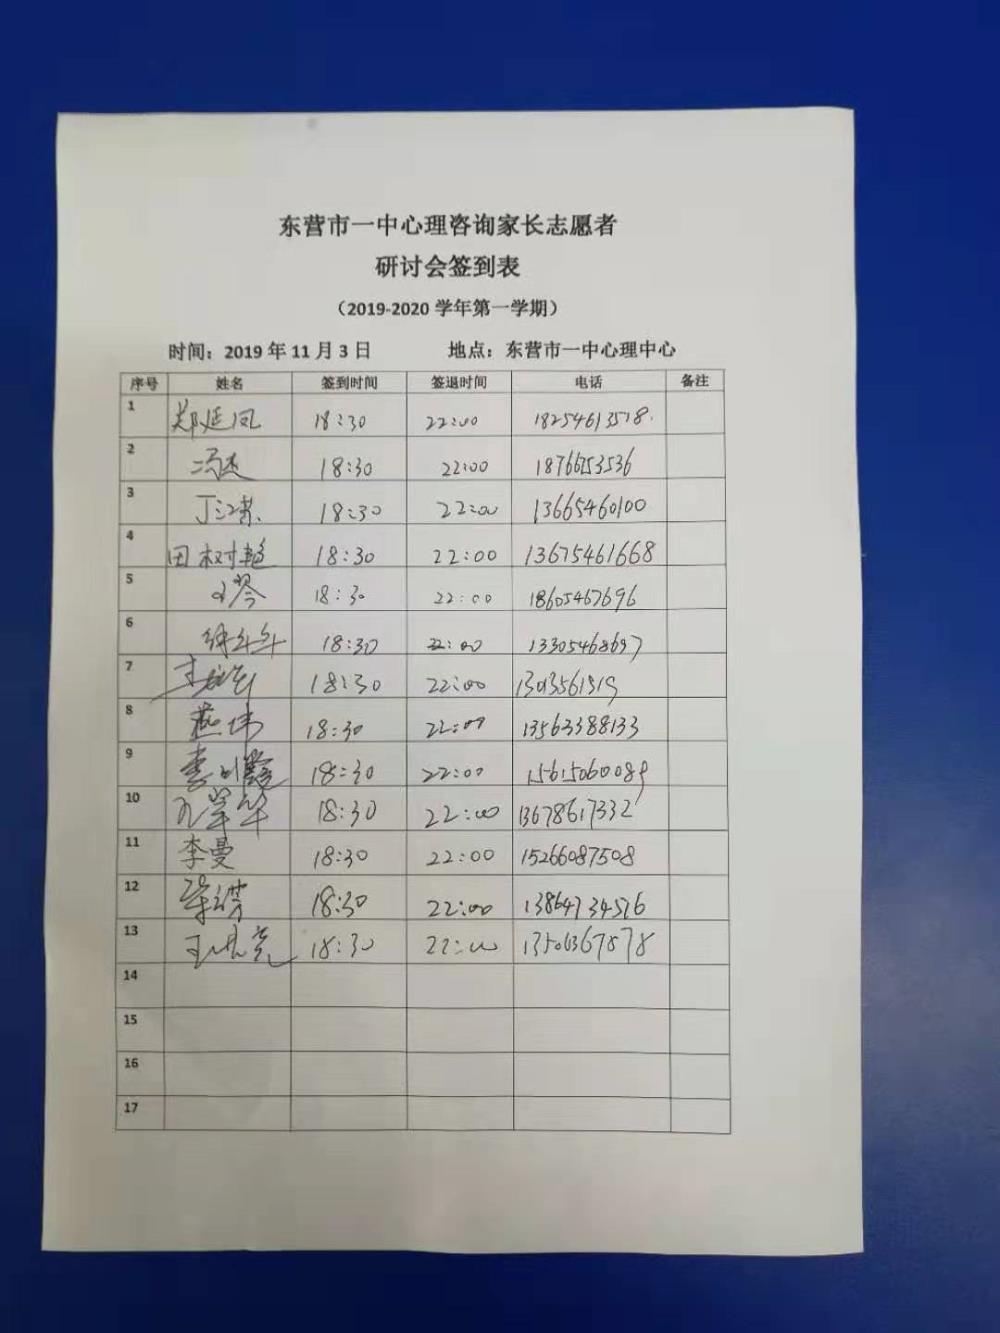 东营市一中心理咨询家长志愿者
研讨会签到表
（2019-2020 学年第一学期）
时间：2019 年 11 月 3 日 地点：东营市一中心理中心
序号 姓名 签到时间 签退时间 电话 备注
1 郑延凤 18:30 22:00 18254613518
2 冯杰 18:30 22:00
3 18:30 22:00 13665460100
4 田树艳 18:30 22:00 13675461668
5 18:30 22:00 18605467696
6 18:30 22:00 13305468697
7 18:30 22:00
8 燕伟 18:30 22:00 13563388133
9 18:30 22:00 15615060089
10 18:30 22:00 13678617332
11 李曼 18:30 22:00 15266087508
12 18:30 22:00 13864734516
13 18:30 22:00
14
15
16
17